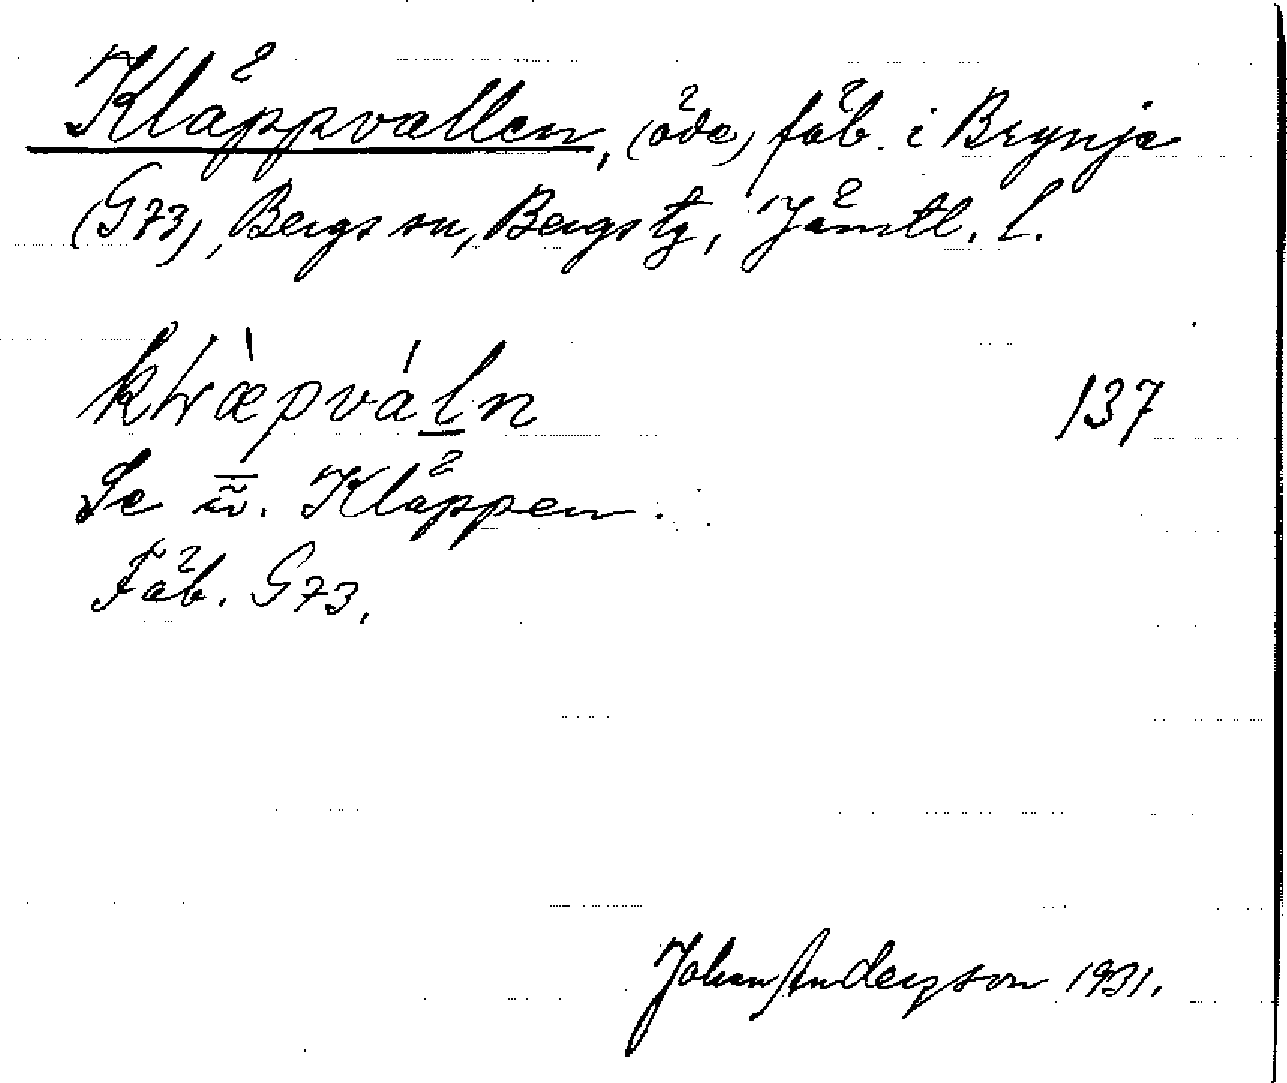 Kläppvallen, (öde) fäb. i Brynje
(G73), Bergs sn, Bergs tg, Jämtl. l.
137
Se u. Kläppen.
Fäb. G73.
Johan Anderzson 1931.